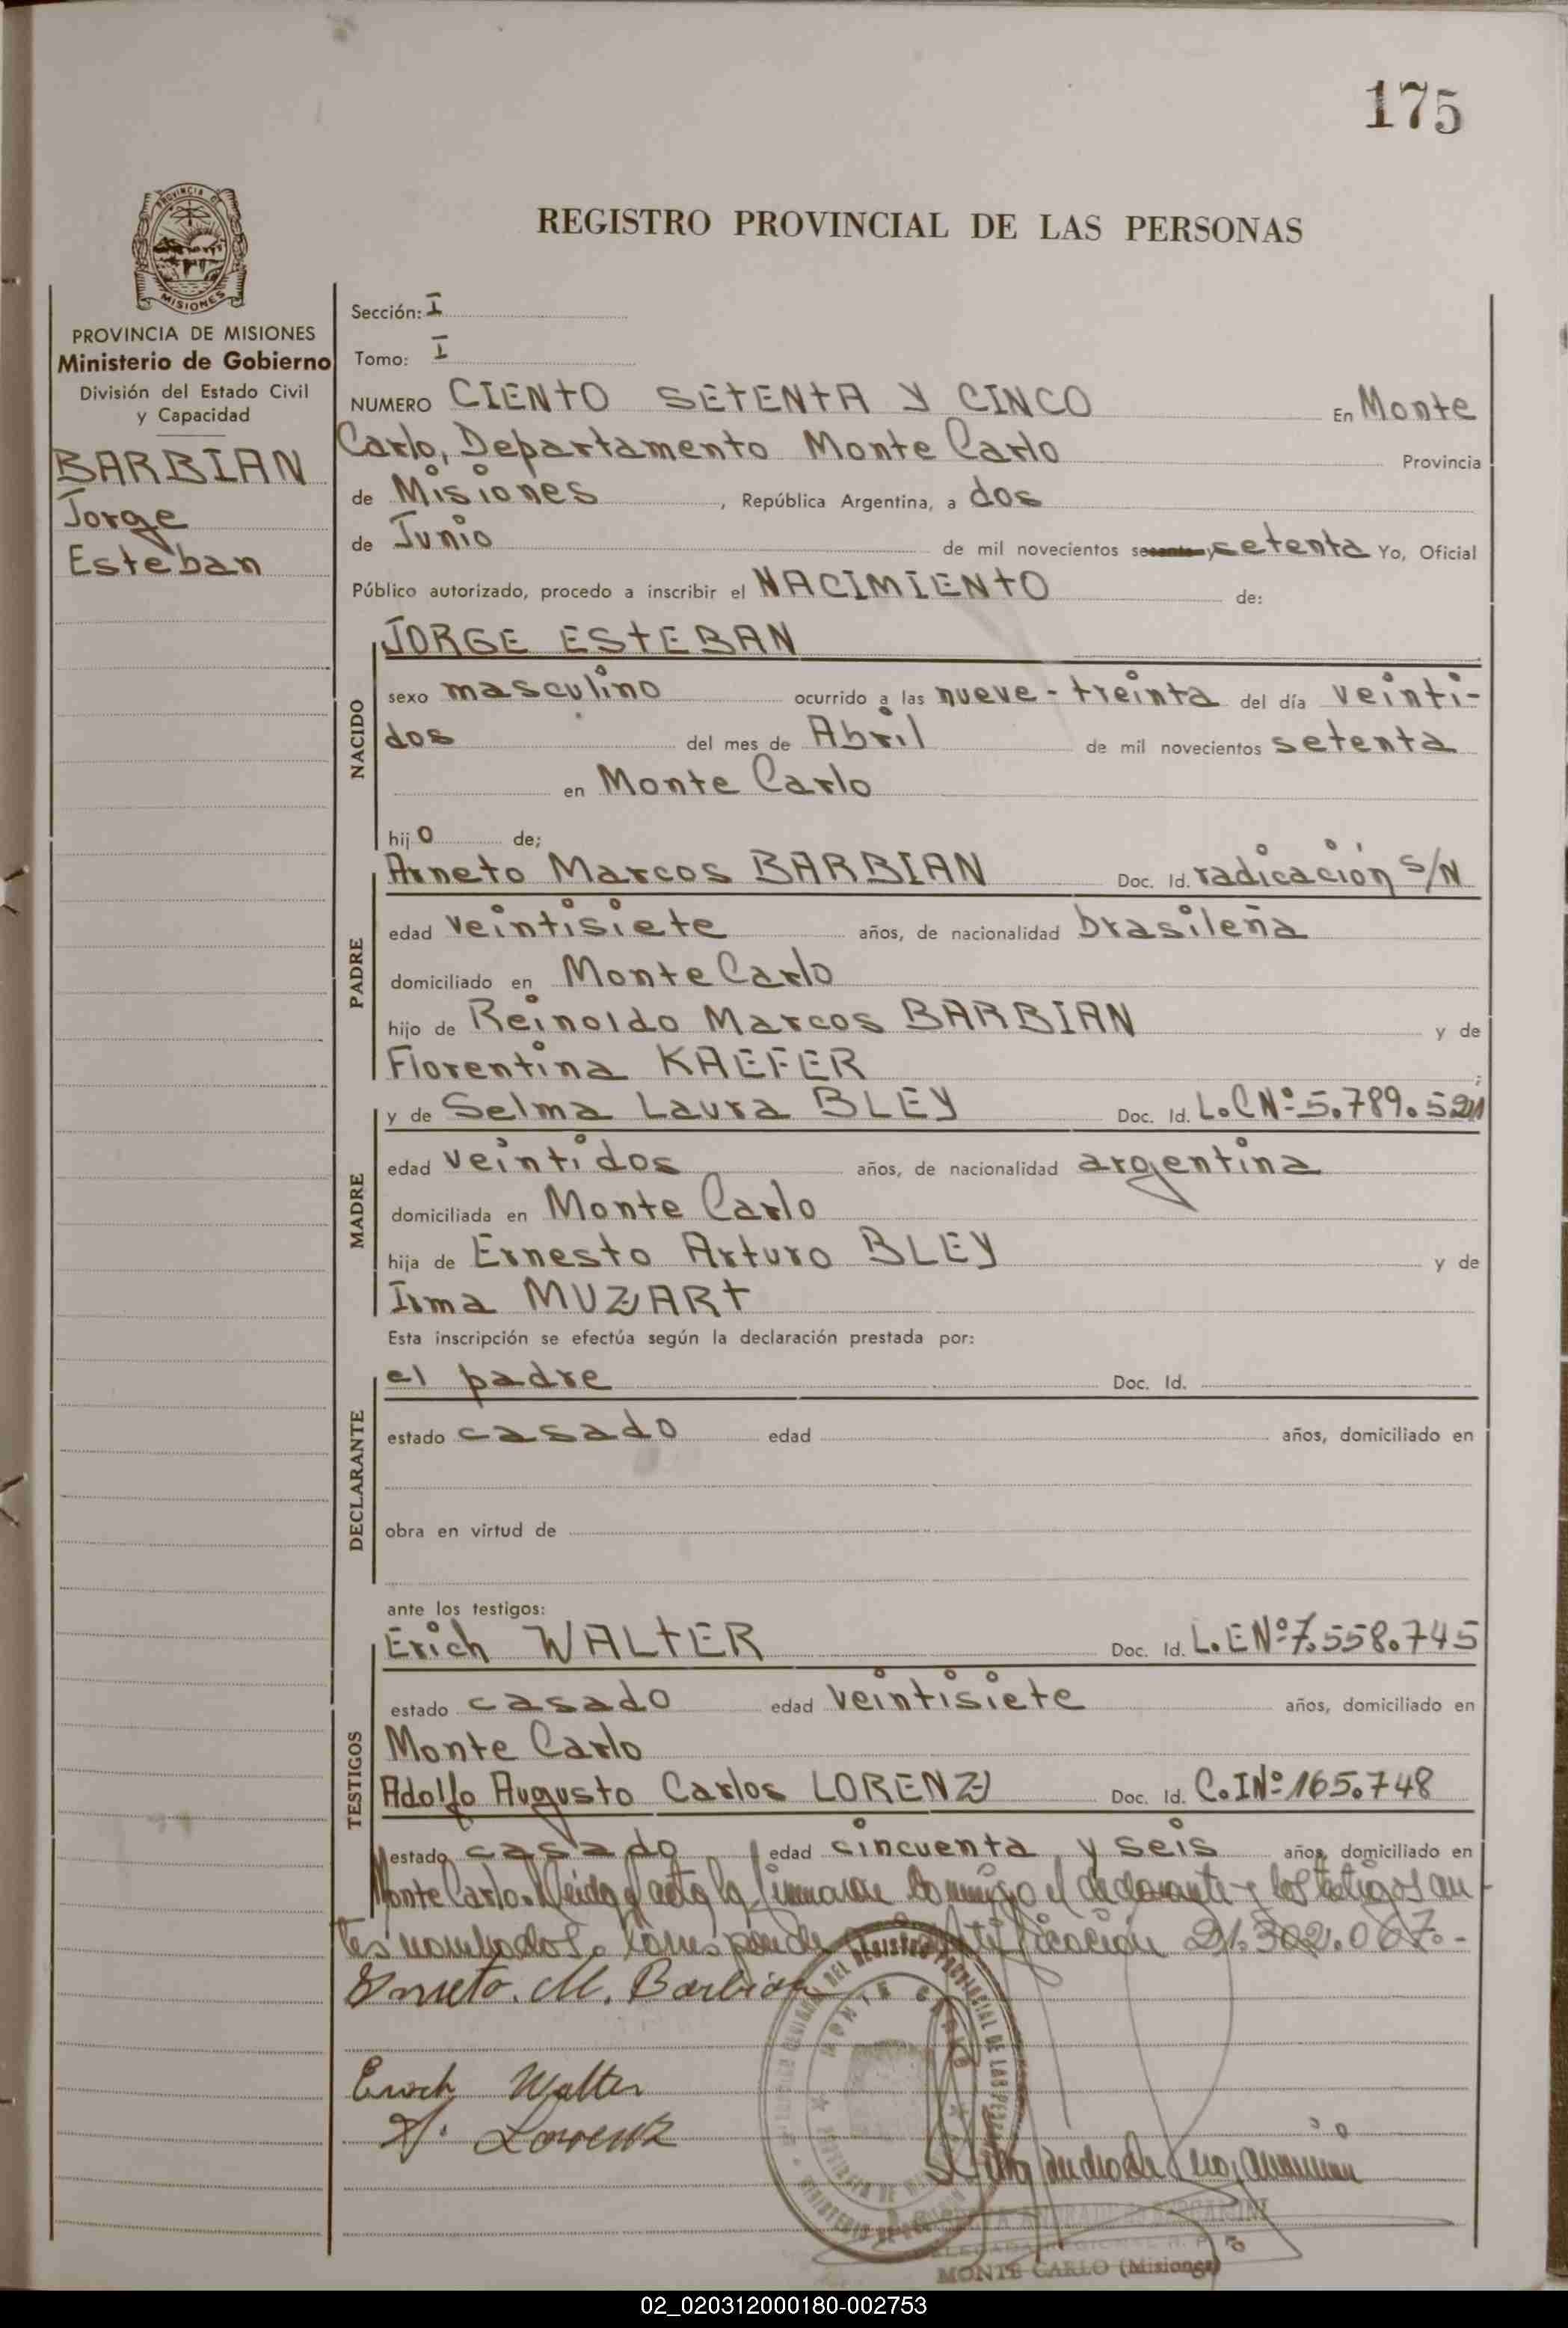 175
PROVINCIA DE
MISIONES
REGISTRO PROVINCIAL DE LAS PERSONAS
PROVINCIA DE MISIONES
Ministerio de Gobierno
División del Estado Civil
y Capacidad
BARBIAN
Jorge
Esteban
Sección: I
Tomo: I
NUMERO CIENTO SETENTA Y CINCO En Monte
Carlo, Departamento Monte Carlo Provincia
de Misiones, República Argentina, a dos
de Junio de mil novecientos setenta Yo, Oficial
Público autorizado, procedo a inscribir el NACIMIENTO de:
NACIDO
JORGE ESTEBAN
sexo masculino ocurrido a las nueve-treinta del día veinti-
dos del mes de Abril de mil novecientos setenta
en Monte Carlo
hijo de;
PADRE
Arneto Marcos BARBIAN Doc. Id. radicación S/N
edad veintisiete años, de nacionalidad brasileña
domiciliado en Monte Carlo
hijo de Reinoldo Marcos BARBIAN y de
Florentina KAEFER;
MADRE
y de Selma Laura BLEY Doc. Id. L.C Nº 5.789.521
edad veintidos años, de nacionalidad argentina
domiciliada en Monte Carlo
hija de Ernesto Arturo BLEY y de
Irma MUZART
Esta inscripción se efectúa según la declaración prestada por:
DECLARANTE
el padre Doc. Id.
estado casado edad años, domiciliado en
obra en virtud de
ante los testigos:
TESTIGOS
Erich WALTER Doc. Id. L.E Nº 7.558.745
estado casado edad veintisiete años, domiciliado en
Monte Carlo
Adolfo Augusto Carlos LORENZ Doc. Id. C.I Nº 165.748
estado casado edad cincuenta y seis años, domiciliado en
Monte Carlo. Leida el acta la firman conmigo el declarante y los testigos an
tes nombrados. Corresponde identificación 21.302.067.-
Arneto. M. Barbian
Erich Walter
A. Lorenz
MONTE CARLO (Misiones)
02_020312000180-002753